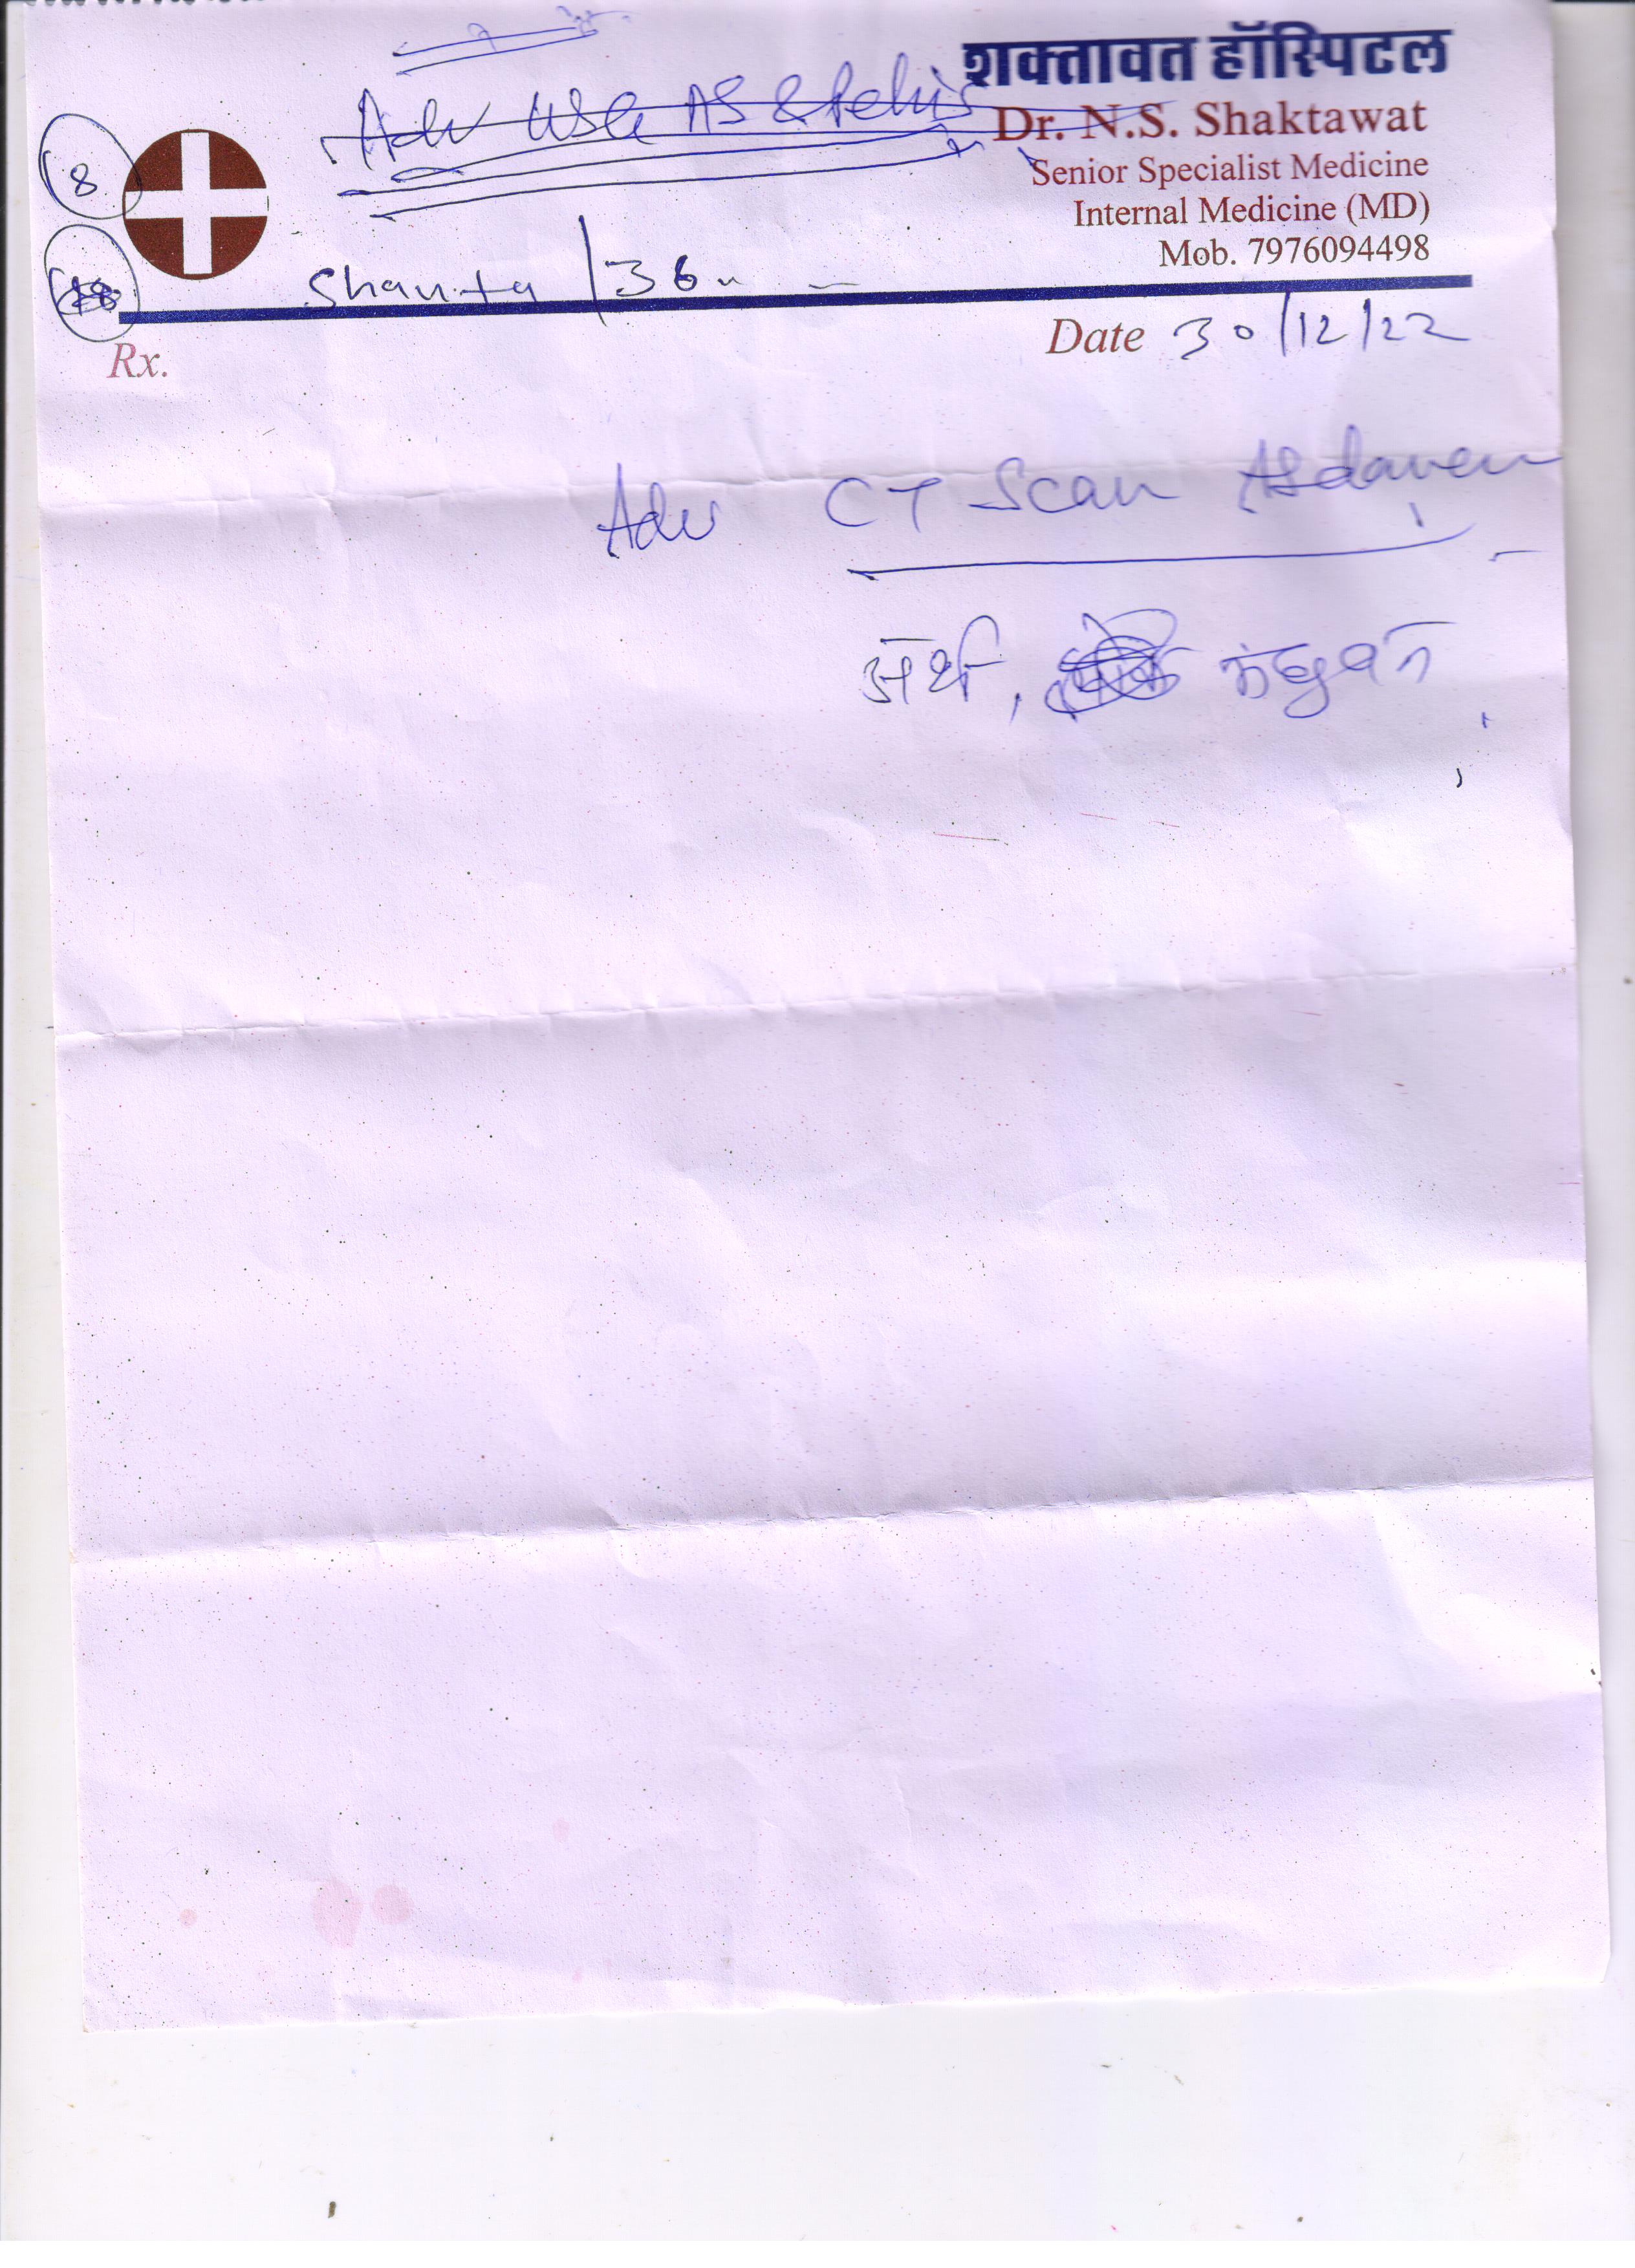 शक्तावत हॉस्पिटल
Adv USG AS & Pelvis
Dr. N.S. Shaktawat
Senior Specialist Medicine
8
Internal Medicine (MD)
Mob. 7976094498
Shanta / 36
Rx.
Date 30/12/22
Adv CT Scan Abdomen
अर्थ,